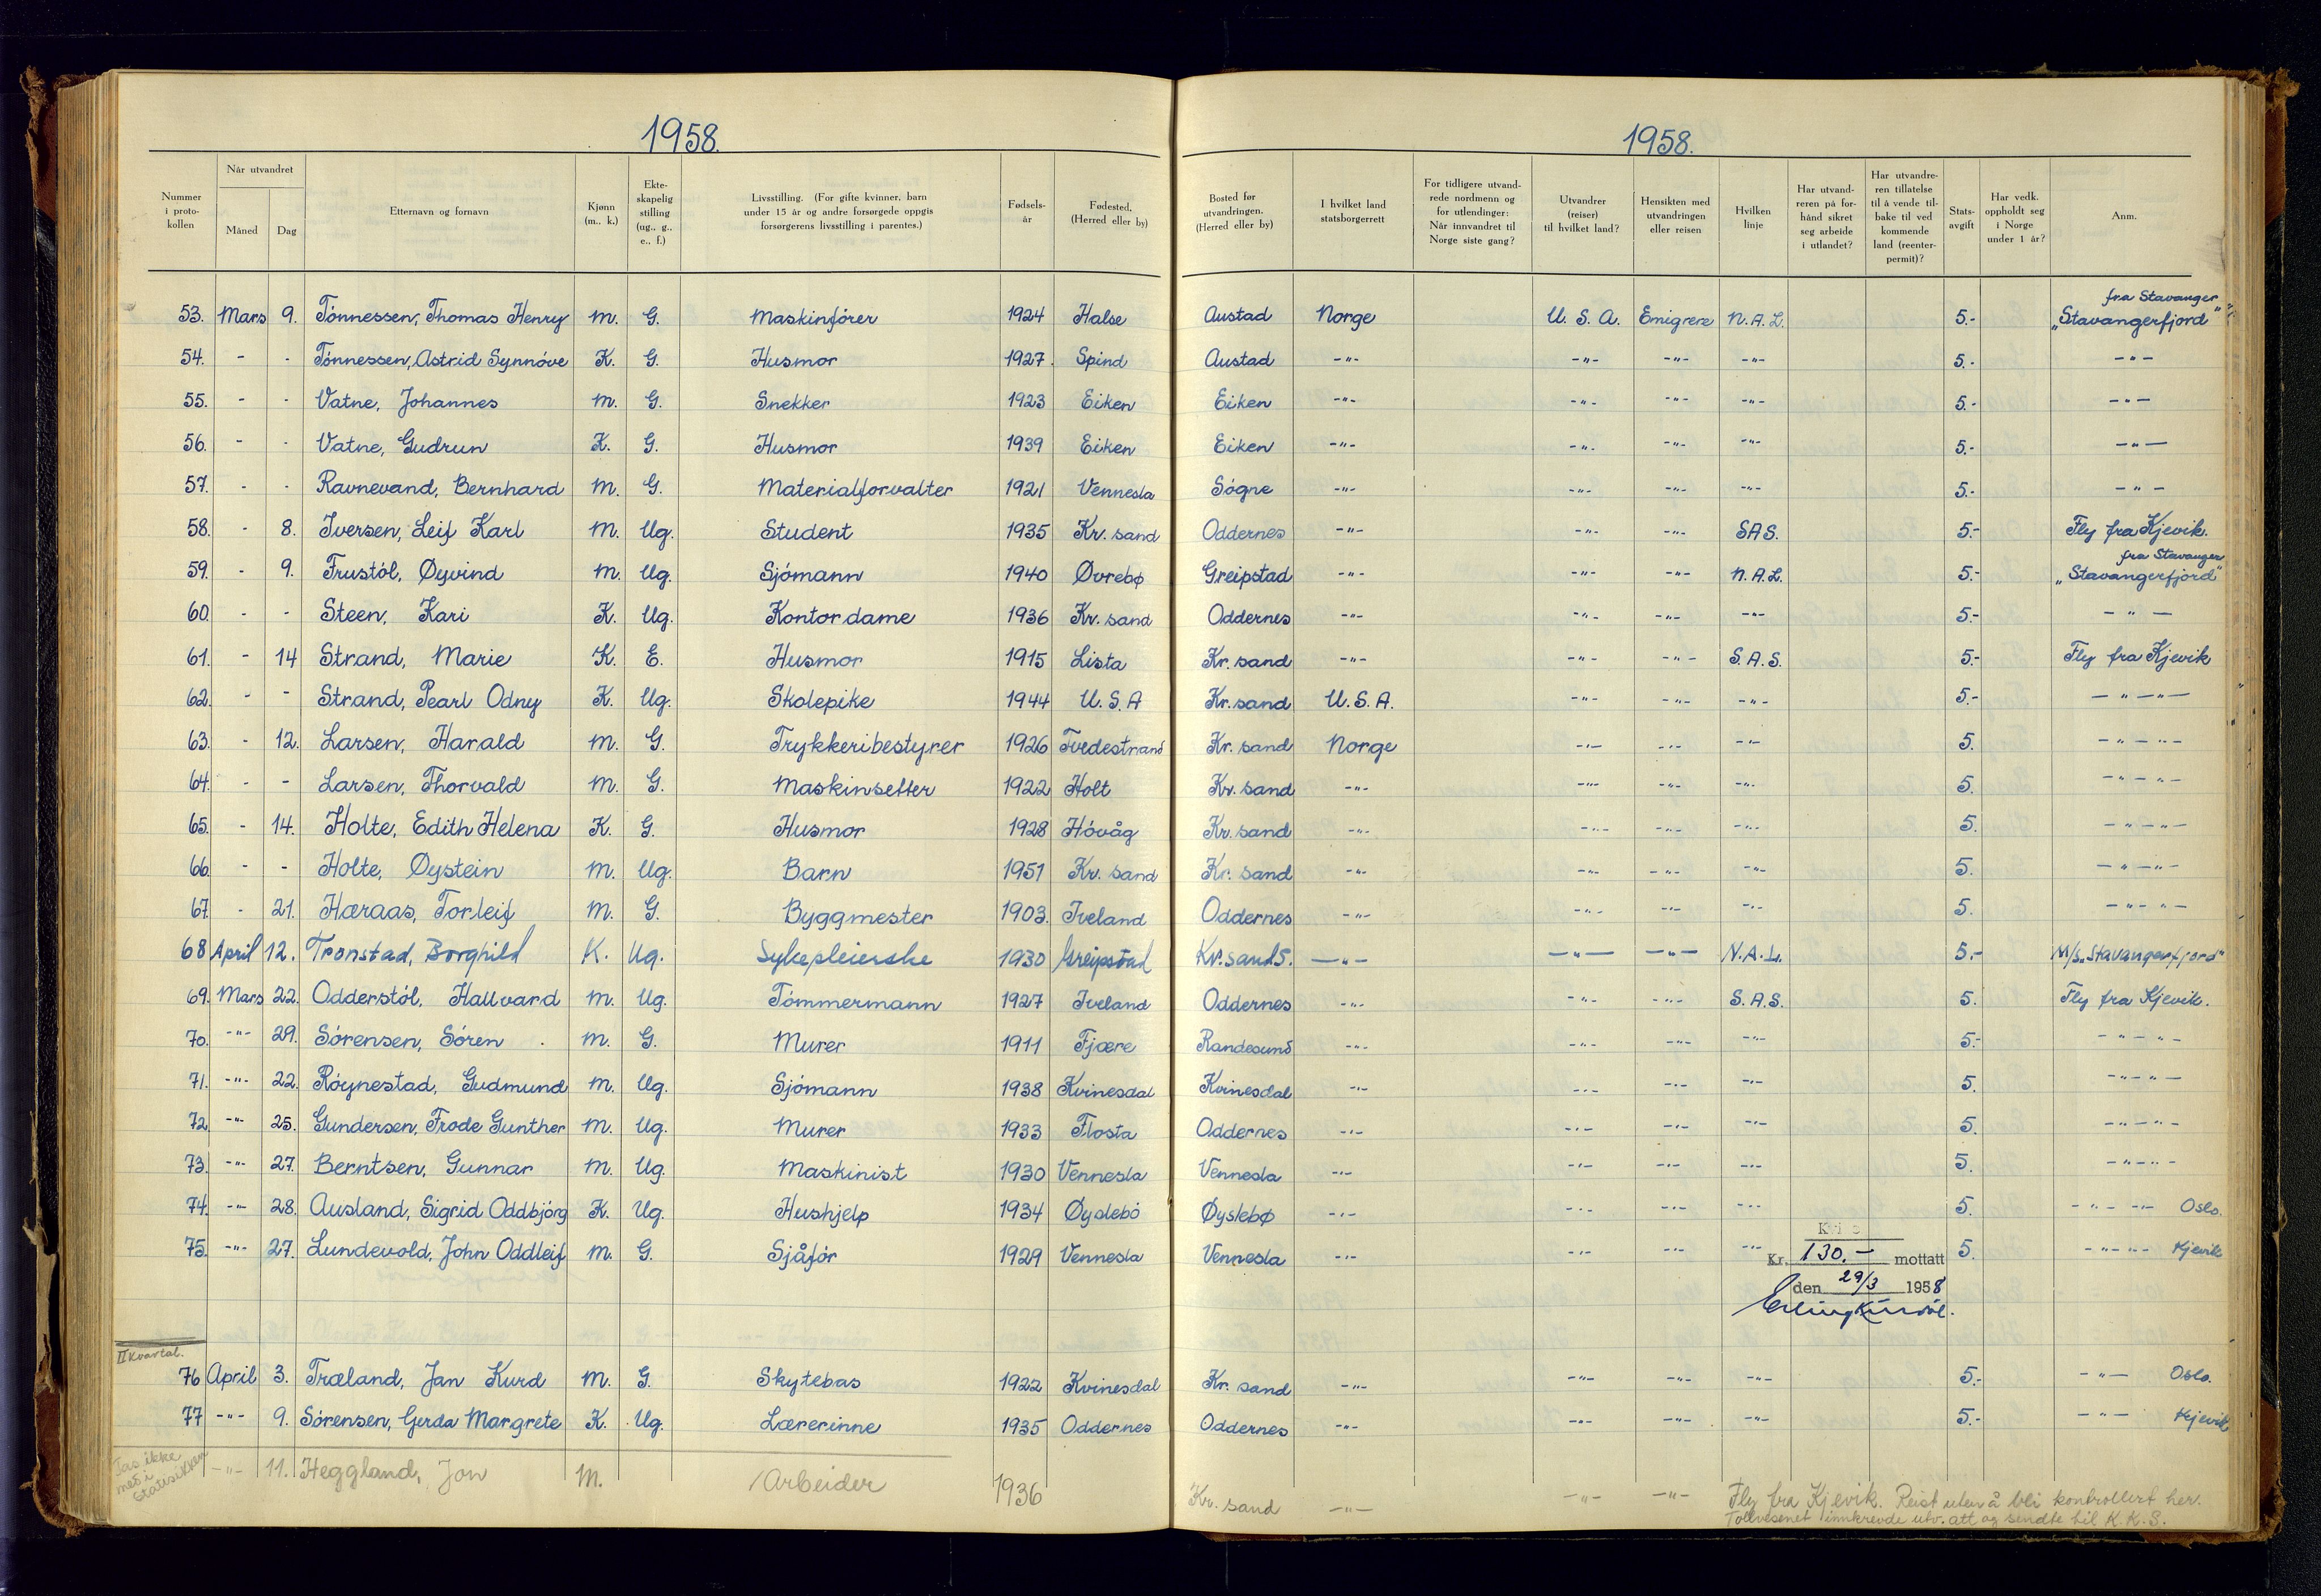 1958.
1958.
Nummer i protokollen | Når utvandret | Måned | Dag | Etternavn og fornavn | Kjønn (m., k.) | Ekteskapelig stilling (ug., g., e., f.) | Livsstilling. (For gifte kvinner, barn under 15 år og andre forsørgede oppgis forsørgerens livsstilling i parentes.) | Fødselsår | Fødested. (Herred eller by) | Bosted før utvandringen. (Herred eller by) | I hvilket land statsborgerrett | For tidligere utvandrede nordmenn og for utlendinger: Når innvandret til Norge siste gang? | Utvandrer (reiser) til hvilket land? | Hensikten med utvandringen eller reisen | Hvilken linje | Har utvandreren på forhånd sikret seg arbeide i utlandet? | Har utvandreren tillatelse til å vende tilbake til vedkommende land (reenterpermit)? | Statsavgift | Har vedk. oppholdt seg i Norge under 1 år? | Anm.
53. Mars 9. Tønnessen, Thomas Henry M. G. Maskinfører 1924 Halse Austad Norge U.S.A. Emigrere N.A.L. 5.- fra Stavanger „Stavangerfjord"
54. - - Tønnessen, Astrid Synnøve K. G. Husmor 1927. Spind Austad -"- -"- -"- -"- 5.- -"-
55. - - Vatne, Johannes M. G. Snekker 1923 Eiken Eiken -"- -"- -"- -"- 5.- -"-
56. - - Vatne, Gudrun K. G. Husmor 1939 Eiken Eiken -"- -"- -"- -"- 5.- -"-
57. - - Ravnevand, Bernhard M. G. Materialforvalter 1921 Vennesla Søgne -"- -"- -"- -"- 5.- -"-
58. - 8. Iversen, Leif Karl M. Ug. Student 1935 Kr. sand Oddernes -"- -"- -"- SAS. 5.- Fly fra Kjevik.
59. - 9. Frustøl, Øyvind M. Ug. Sjömann 1940 Øvrebø Greipstad -"- -"- -"- N.A.L. 5.- fra Stavanger „Stavangerfjord"
60. - - Steen, Kari K. Ug. Kontordame 1936 Kr. sand Oddernes -"- -"- -"- -"- 5.- -"-
61. - 14 Strand, Marie K. E. Husmor 1915 Lista Kr. sand -"- -"- -"- S.A.S. 5.- Fly fra Kjevik
62. - - Strand, Pearl Odny K. Ug. Skolepike 1944 U.S.A Kr. sand U.S.A. -"- -"- -"- 5.- -"-"-
63. - 12. Larsen, Harald M. G. Trykkeribestyrer 1926 Tvedestrand Kr. sand Norge -"- -"- -"- 5. -"-"-
64. - - Larsen, Thorvald M. G. Maskinsetter 1922 Holt Kr. sand -"- -"- -"- -"- 5. -"-"-
65. - 14. Holte, Edith Helena K. G. Husmor 1928 Hóvåg Kr. sand -"- -"- -"- -"- 5. -"-"-
66. - - Holte, Øystein M. Ug. Barn 1951 Kr. sand Kr. sand -"- -"- -"- -"- 5. -"-"-
67. - 21. Hæraas, Torleif M. G. Byggmester 1903. Iveland Oddernes -"- -"- -"- -"- 5. -"-"-
68 April 12. Tronstad, Borghild K. Ug. Sykepleierske 1930 Greipstad Kr.sand S. -"- -"- -"- N.A.L. 5.- M/s „Stavangerfjord"
69. Mars 22. Odderstól, Hallvard M. Ug. Tömmermann 1927 Iveland Oddernes -"- -"- -"- S.A.S. 5. Fly fra Kjevik.
70. -"- 29. Sórensen, Sóren M. G. Murer 1911 Fjære Randesund -"- -"- -"- -"- 5.- -"-"-
71. -"- 22. Róynestad, Gudmund M. Ug. Sjómann 1938 Kvinesdal Kvinesdal -"- -"- -"- -"- 5. -"-"-
72 -"- 25. Gundersen, Frode Gunther M. Ug. Murer 1933 Flosta Oddernes -"- -"- -"- -"- 5. -"-"-
73. -"- 27. Berntsen, Gunnar M. Ug. Maskinist 1930 Vennesla Vennesla -"- -"- -"- -"- 5. -"-"-
74. -"- 28. Ausland, Sigrid Oddbjórg K. Ug. Hushjelp 1934 Øyslebó Øyslebø -"- -"- -"- -"- 5. -"-"- Oslo.
75. -"- 27. Lundevold, John Oddleif M. G. Sjåfór 1929 Vennesla Vennesla -"- -"- -"- -"- 5. -"-"- Kjevik
Kr. 130.- mottatt
den 29/3 1958
II Kvartal.
76 April 3. Træland, Jan Kurd M. G. Skytebas 1922 Kvinesdal Kr. sand -"- -"- -"- -"- 5.- -"- Oslo.
77 -"- 9. Sórensen, Gerda Margrete K. Ug. Lærerinne 1935 Oddernes Oddernes -"- -"- -"- -"- 5.- -"- Kjevik
Tas ikke med i statisikken -"- 11. Heggland, Jon M. Arbeider 1936 Kr. sand -"- -"- -"- Fly fra Kjevik. Reist uten å bli kontrollert her.
Tollvesenet innkrevde utv. att og sendte til K.K.S.